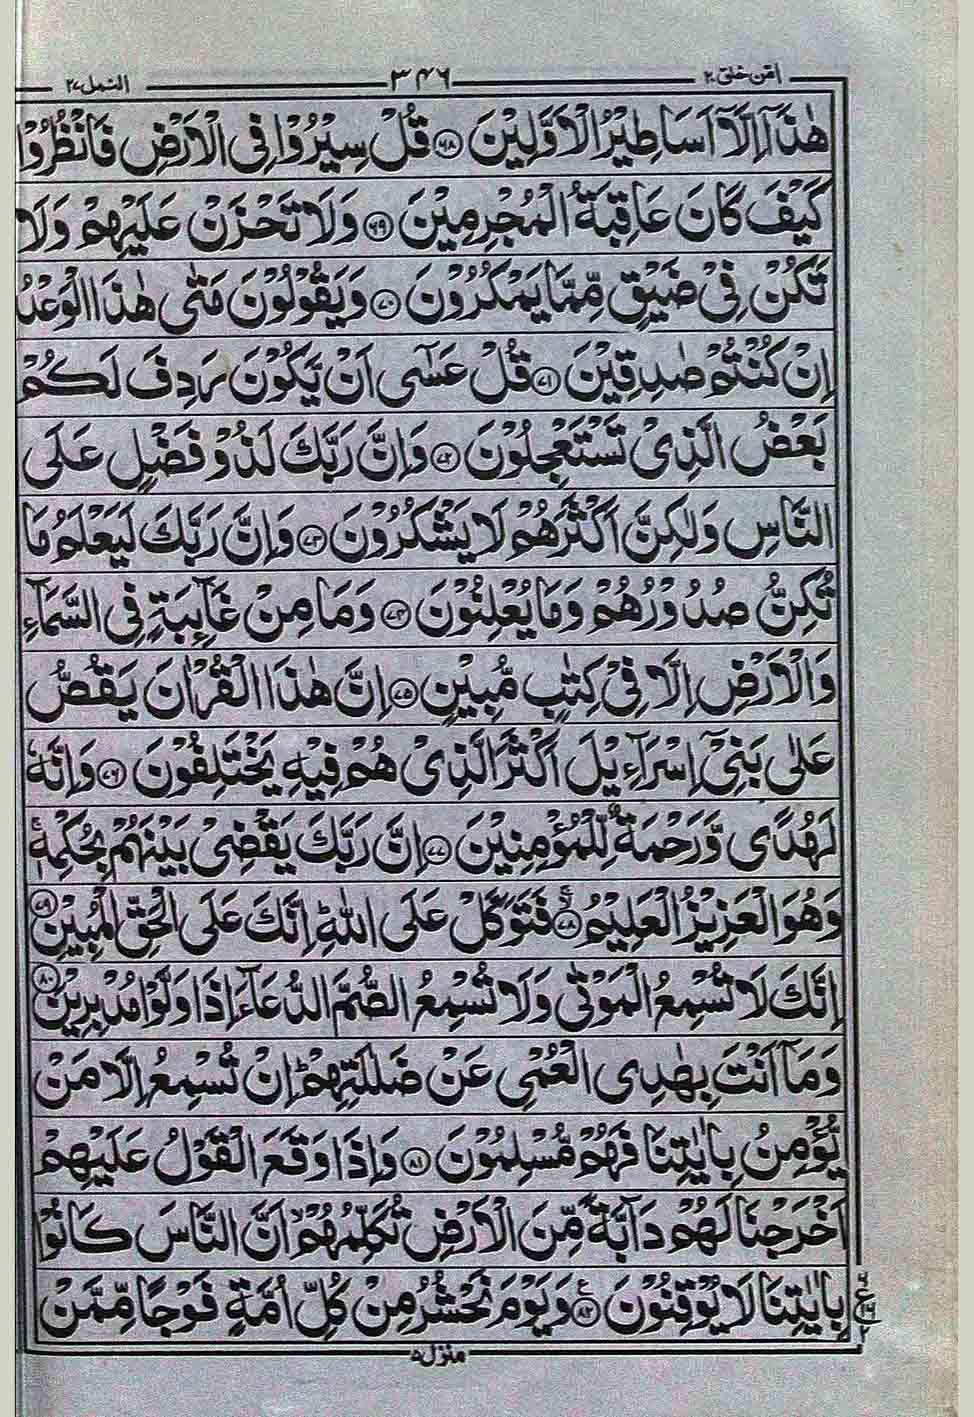 امن خلق ٢٠ ٣۴۶ النمل ٢٧
هٰذَاۤ اِلَّاۤ اَسَاطِيْرُ الْاَوَّلِيْنَ ۶۸ قُلْ سِيْرُوْا فِى الْاَرْضِ فَانْظُرُوْا
كَيْفَ كَانَ عَاقِبَةُ الْمُجْرِمِيْنَ ۶۹ وَلَا تَحْزَنْ عَلَيْهِمْ وَلَا
تَكُنْ فِىْ ضَيْقٍ مِّمَّا يَمْكُرُوْنَ ۷۰ وَيَقُوْلُوْنَ مَتٰى هٰذَا الْوَعْدُ
اِنْ كُنْتُمْ صٰدِقِيْنَ ۷۱ قُلْ عَسٰۤى اَنْ يَّكُوْنَ رَدِفَ لَكُمْ
بَعْضُ الَّذِىْ تَسْتَعْجِلُوْنَ ۷۲ وَاِنَّ رَبَّكَ لَذُوْ فَضْلٍ عَلَى
النَّاسِ وَلٰكِنَّ اَكْثَرَهُمْ لَا يَشْكُرُوْنَ ۷۳ وَاِنَّ رَبَّكَ لَيَعْلَمُ مَا
تُكِنُّ صُدُوْرُهُمْ وَمَا يُعْلِنُوْنَ ۷۴ وَمَا مِنْ غَآئِبَةٍ فِى السَّمَآءِ
وَالْاَرْضِ اِلَّا فِىْ كِتٰبٍ مُّبِيْنٍ ۷۵ اِنَّ هٰذَا الْقُرْاٰنَ يَقُصُّ
عَلٰى بَنِىْۤ اِسْرَآءِيْلَ اَكْثَرَ الَّذِىْ هُمْ فِيْهِ يَخْتَلِفُوْنَ ۷۶ وَاِنَّهٗ
لَهُدًى وَّرَحْمَةٌ لِّلْمُؤْمِنِيْنَ ۷۷ اِنَّ رَبَّكَ يَقْضِىْ بَيْنَهُمْ بِحُكْمِهٖ ۚ
وَهُوَ الْعَزِيْزُ الْعَلِيْمُ ۷۸ فَتَوَكَّلْ عَلَى اللّٰهِ ؕ اِنَّكَ عَلَى الْحَقِّ الْمُبِيْنِ ۷۹
اِنَّكَ لَا تُسْمِعُ الْمَوْتٰى وَلَا تُسْمِعُ الصُّمَّ الدُّعَآءَ اِذَا وَلَّوْا مُدْبِرِيْنَ ۸۰
وَمَاۤ اَنْتَ بِهٰدِى الْعُمْىِ عَنْ ضَلٰلَتِهِمْ ؕ اِنْ تُسْمِعُ اِلَّا مَنْ
يُّؤْمِنُ بِاٰيٰتِنَا فَهُمْ مُّسْلِمُوْنَ ۸۱ وَاِذَا وَقَعَ الْقَوْلُ عَلَيْهِمْ
اَخْرَجْنَا لَهُمْ دَآبَّةً مِّنَ الْاَرْضِ تُكَلِّمُهُمْ ۙ اَنَّ النَّاسَ كَانُوْا
بِاٰيٰتِنَا لَا يُوْقِنُوْنَ ۸۲ وَيَوْمَ نَحْشُرُ مِنْ كُلِّ اُمَّةٍ فَوْجًا مِّمَّنْ
منزل ۵